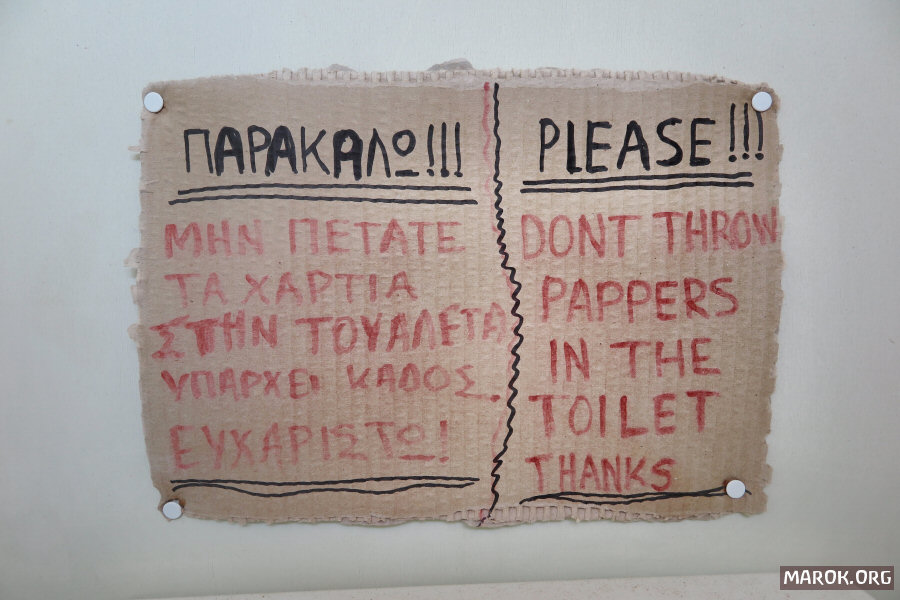 ΠΑΡΑΚΑΛΩ!!!
ΜΗΝ ΠΕΤΑΤΕ
ΤΑ ΧΑΡΤΙΑ
ΣΤΗΝ ΤΟΥΑΛΕΤΑ
ΥΠΑΡΧΕΙ ΚΑΔΟΣ.
ΕΥΧΑΡΙΣΤΩ!
PLEASE!!!
DONT THROW
PAPPERS
IN THE
TOILET
THANKS
MAROK.ORG